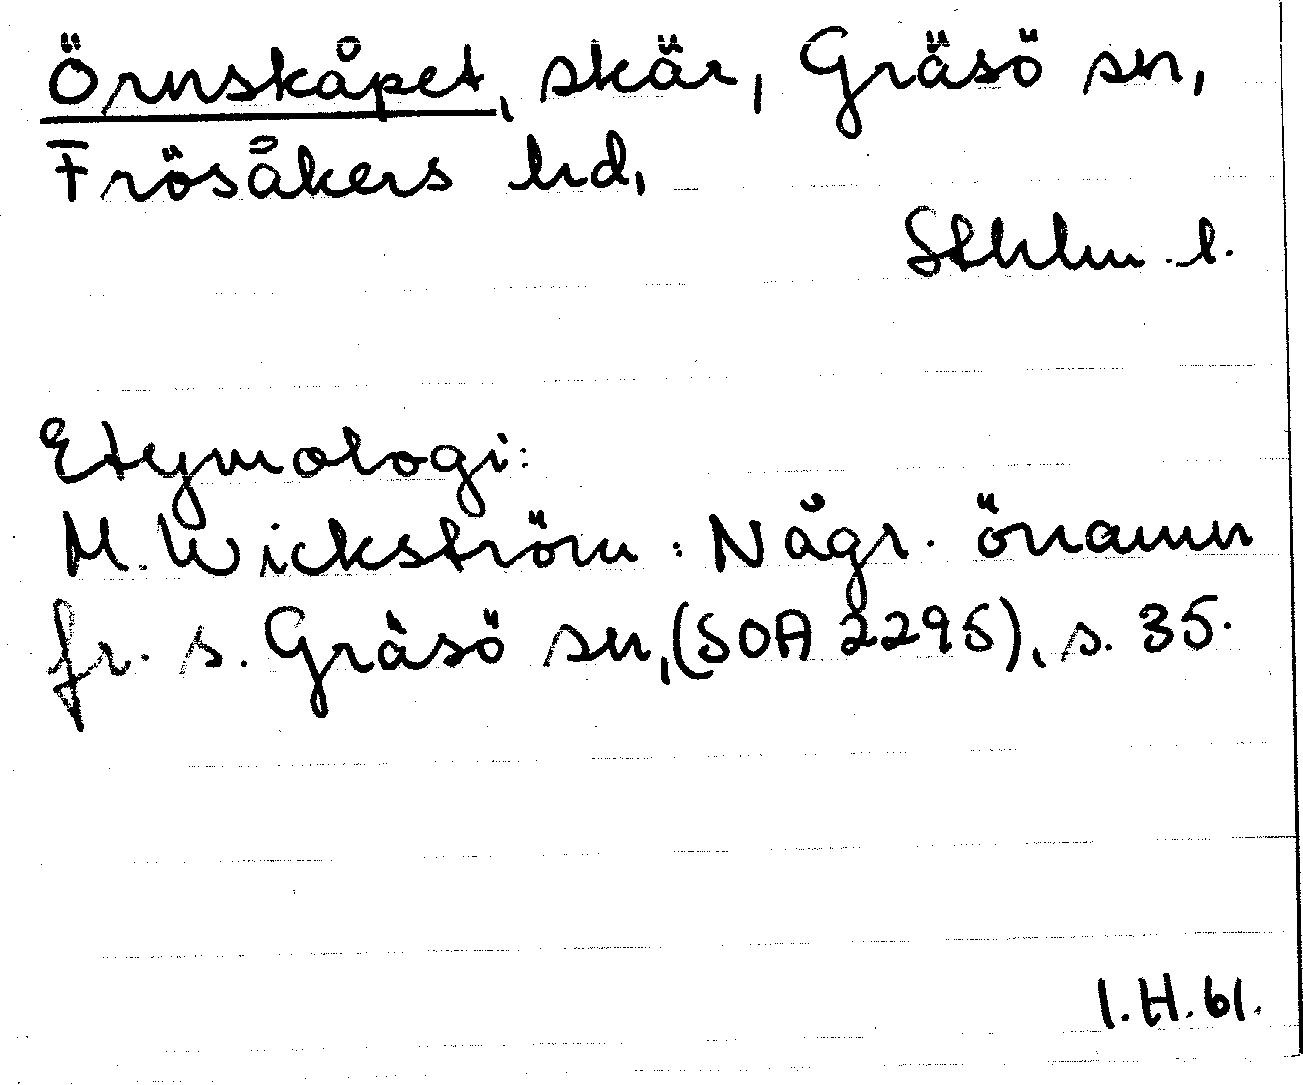 Örnskåpet, skär, Gräsö sn,
Frösåkers hd,
Sthlm. l.
Etymologi:
M. Wickström: Någr. önamn
fr. s. Gräsö sn, (SOA 2295), s. 35.
I.H.61.